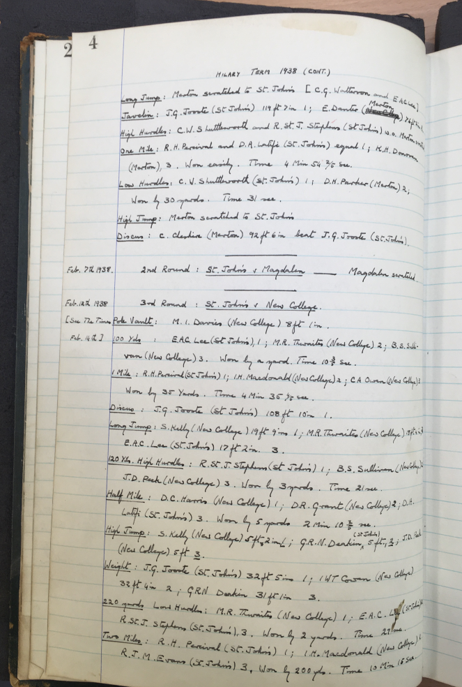 2 4
HILARY TERM 1938 (CONT.)
Long Jump: Merton scratched to St. John's [C.G. Watterson and E.A.C. Lee]
Javelin: J.G. Jooste (St. John's) 119 ft 7 in 1; E. Dawter (Merton)
High Hurdles: C.W. Shuttleworth and R. St. J. Stephens (St. John's) w.o. Merton
One Mile: R.H. Percival and D.A. Latifi (St. John's) equal 1; K.H. Donovan
(Merton), 3. Won easily. Time 4 Min 54 4/5 sec.
Low Hurdles: C.W. Shuttleworth (St. John's) 1; D.H. Parker (Merton) 2;
Won by 30 yards. Time 31 sec.
High Jump: Merton scratched to St. John's
Discus: C. Cheshire (Merton) 92 ft 6 in beat J.G. Jooste (St. John's).
Feb. 7th 1938. 2nd Round: St. John's v Magdalen — Magdalen scratched
Feb. 12th 1938 3rd Round: St. John's v New College.
[See The Times Feb. 14th] Pole Vault: M.I. Davies (New College) 8 ft 1 in.
100 yds: E.A.C. Lee (St. John's), 1; M.R. Thwaites (New College) 2; B.S. Sulli-
van (New College) 3. Won by a yard. Time 10 sec.
1 Mile: R.H. Percival (St. John's) 1; I.H. Macdonald (New College) 2; C.A. Owen (New College) 3
Won by 35 Yards. Time 4 Min 35 sec.
Discus: J.G. Jooste (St. John's) 108 ft 10 in 1.
Long Jump: S. Kelly (New College) 19 ft 9 ins 1; M.R. Thwaites (New College)
E.A.C. Lee (St. John's) 17 ft 2 in 3.
120 Yds. High Hurdles: R. St. J. Stephens (St. John's) 1; B.S. Sullivan (New College)
J.D. Peek (New College) 3. Won by 3 yards. Time 21 sec.
Half Mile: D.C. Harris (New College) 1; D.R. Grant (New College) 2; D.A.
Latifi (St. John's) 3. Won by 5 yards 2 Min 10 sec.
High Jump: S. Kelly (New College) 5 ft 2 in 1; G.R.N. Deakin, (St. John's) 5 ft, 2; J.D.
(New College) 5 ft 3.
Weight: J.G. Jooste (St. John's) 32 ft 5 in 1; Cowen (New College)
32 ft 4 in 2; G.R.N. Deakin 31 ft 1 in 3.
220 yards Low Hurdles: M.R. Thwaites (New College) 1; E.A.C. Lee
R. St. J. Stephens (St. John's), 3. Won by 2 yards. Time
Two Miles: R.H. Percival (St. John's) 1; I.H. Macdonald (New College)
R.J.M. Evans (St. John's) 3. Won by 200 yds. Time 10 Min 15 sec